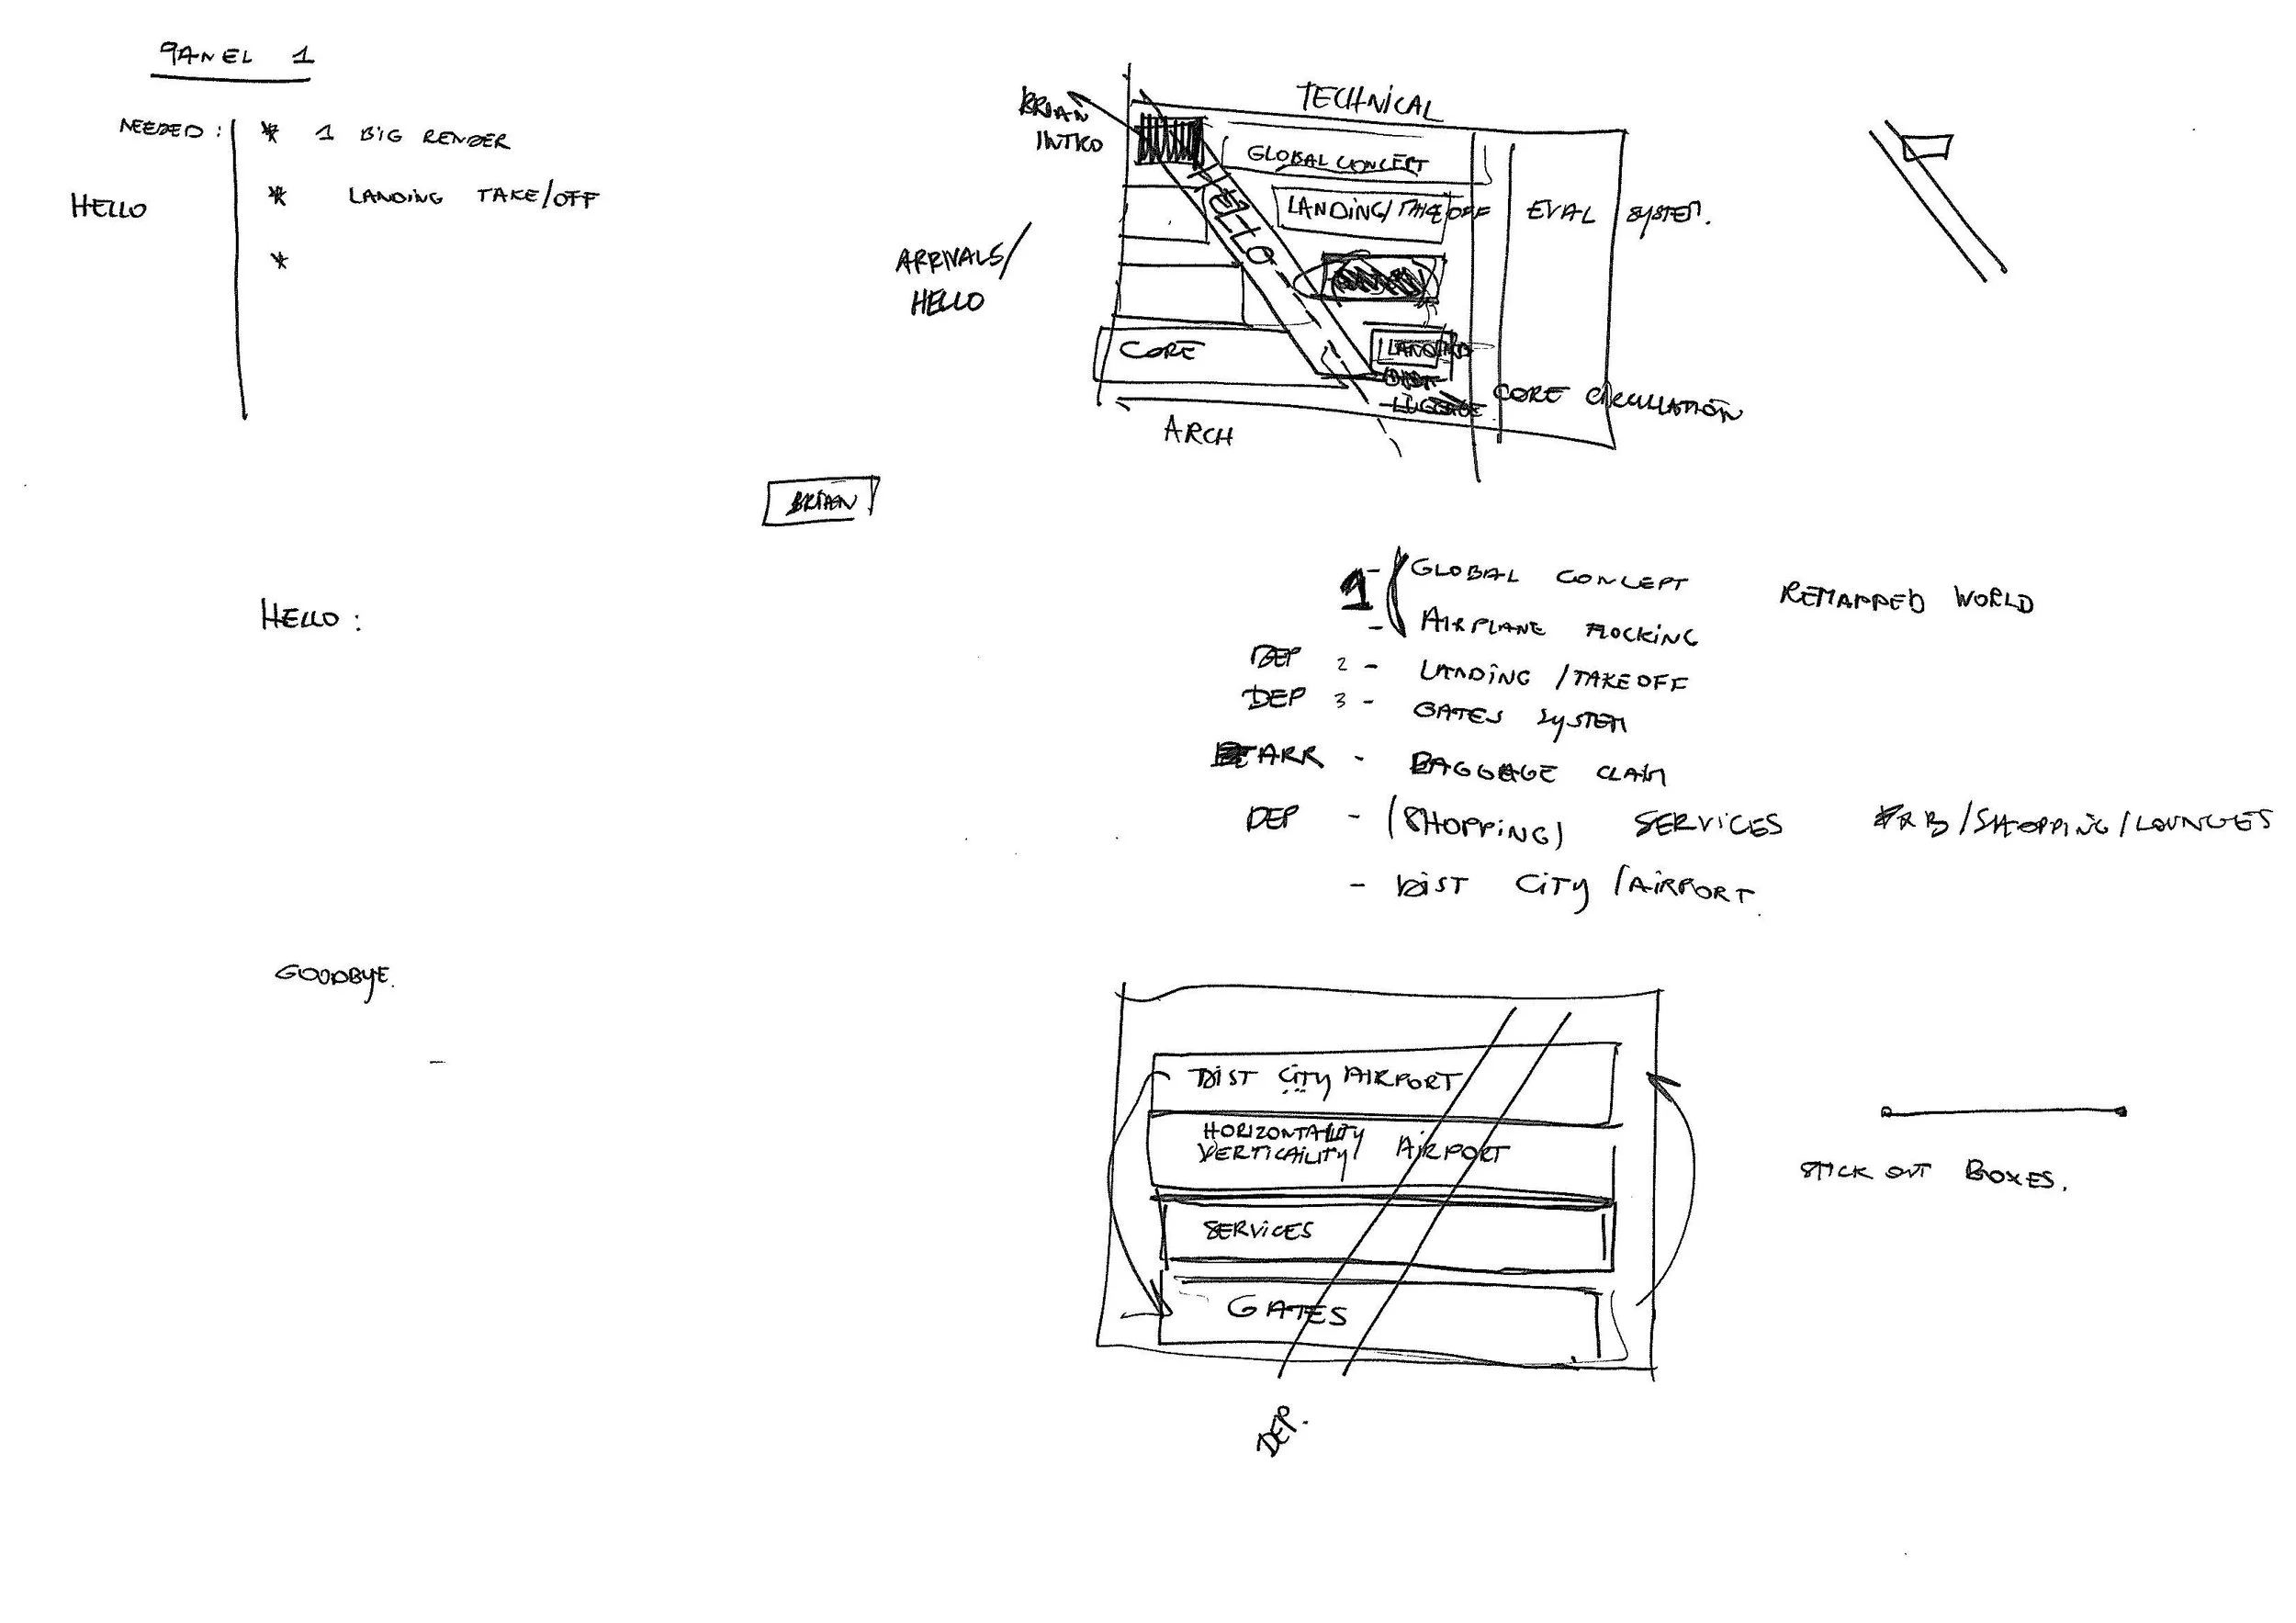 PANEL 1
NEEDED :
* 1 BIG RENDER
HELLO
* LANDING TAKE/OFF
*
TECHNICAL
BRIAN
INTRO
GLOBAL CONCEPT
HELLO
LANDING/TAKE OFF
EVAL SYSTEM.
ARRIVALS/
HELLO
CORE
LUGGAGE
CORE CIRCULATION
ARCH
BRIAN
HELLO :
1 - GLOBAL CONCEPT REMAPPED WORLD
- AIRPLANE FLOCKING
DEP 2 - LANDING /TAKEOFF
DEP 3 - GATES SYSTEM
ARR - BAGGAGE CLAIM
DEP - (SHOPPING) SERVICES F&B/SHOPPING/LOUNGES
- DIST CITY /AIRPORT.
GOODBYE.
DIST CITY AIRPORT
HORIZONTALITY
VERTICAILITY/ AIRPORT
SERVICES
GATES
STICK OUT BOXES.
DEP.